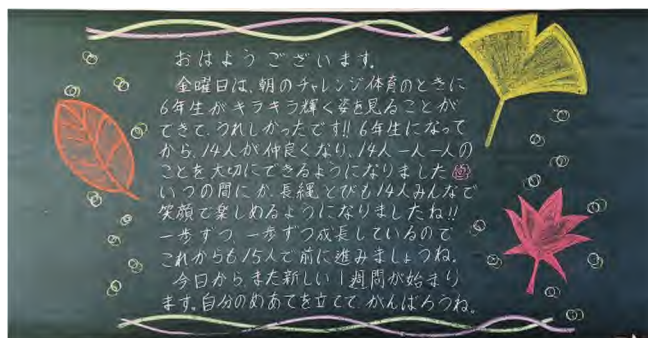 おはようございます。
金曜日は、朝のチャレンジ体育のときに
6年生がキラキラ輝く姿を見ることが
できて、うれしかったです!! 6年生になって
から、14人が仲良くなり、14人一人一人の
ことを大切にできるようになりました
いつの間にか、長縄とびも14人みんなで
笑顔で楽しめるようになりましたね!!
一歩ずつ、一歩ずつ成長しているので
これからも15人で前に進みましょうね。
今日から、また新しい1週間が始まり
ます。自分のめあてを立てて、がんばろうね。